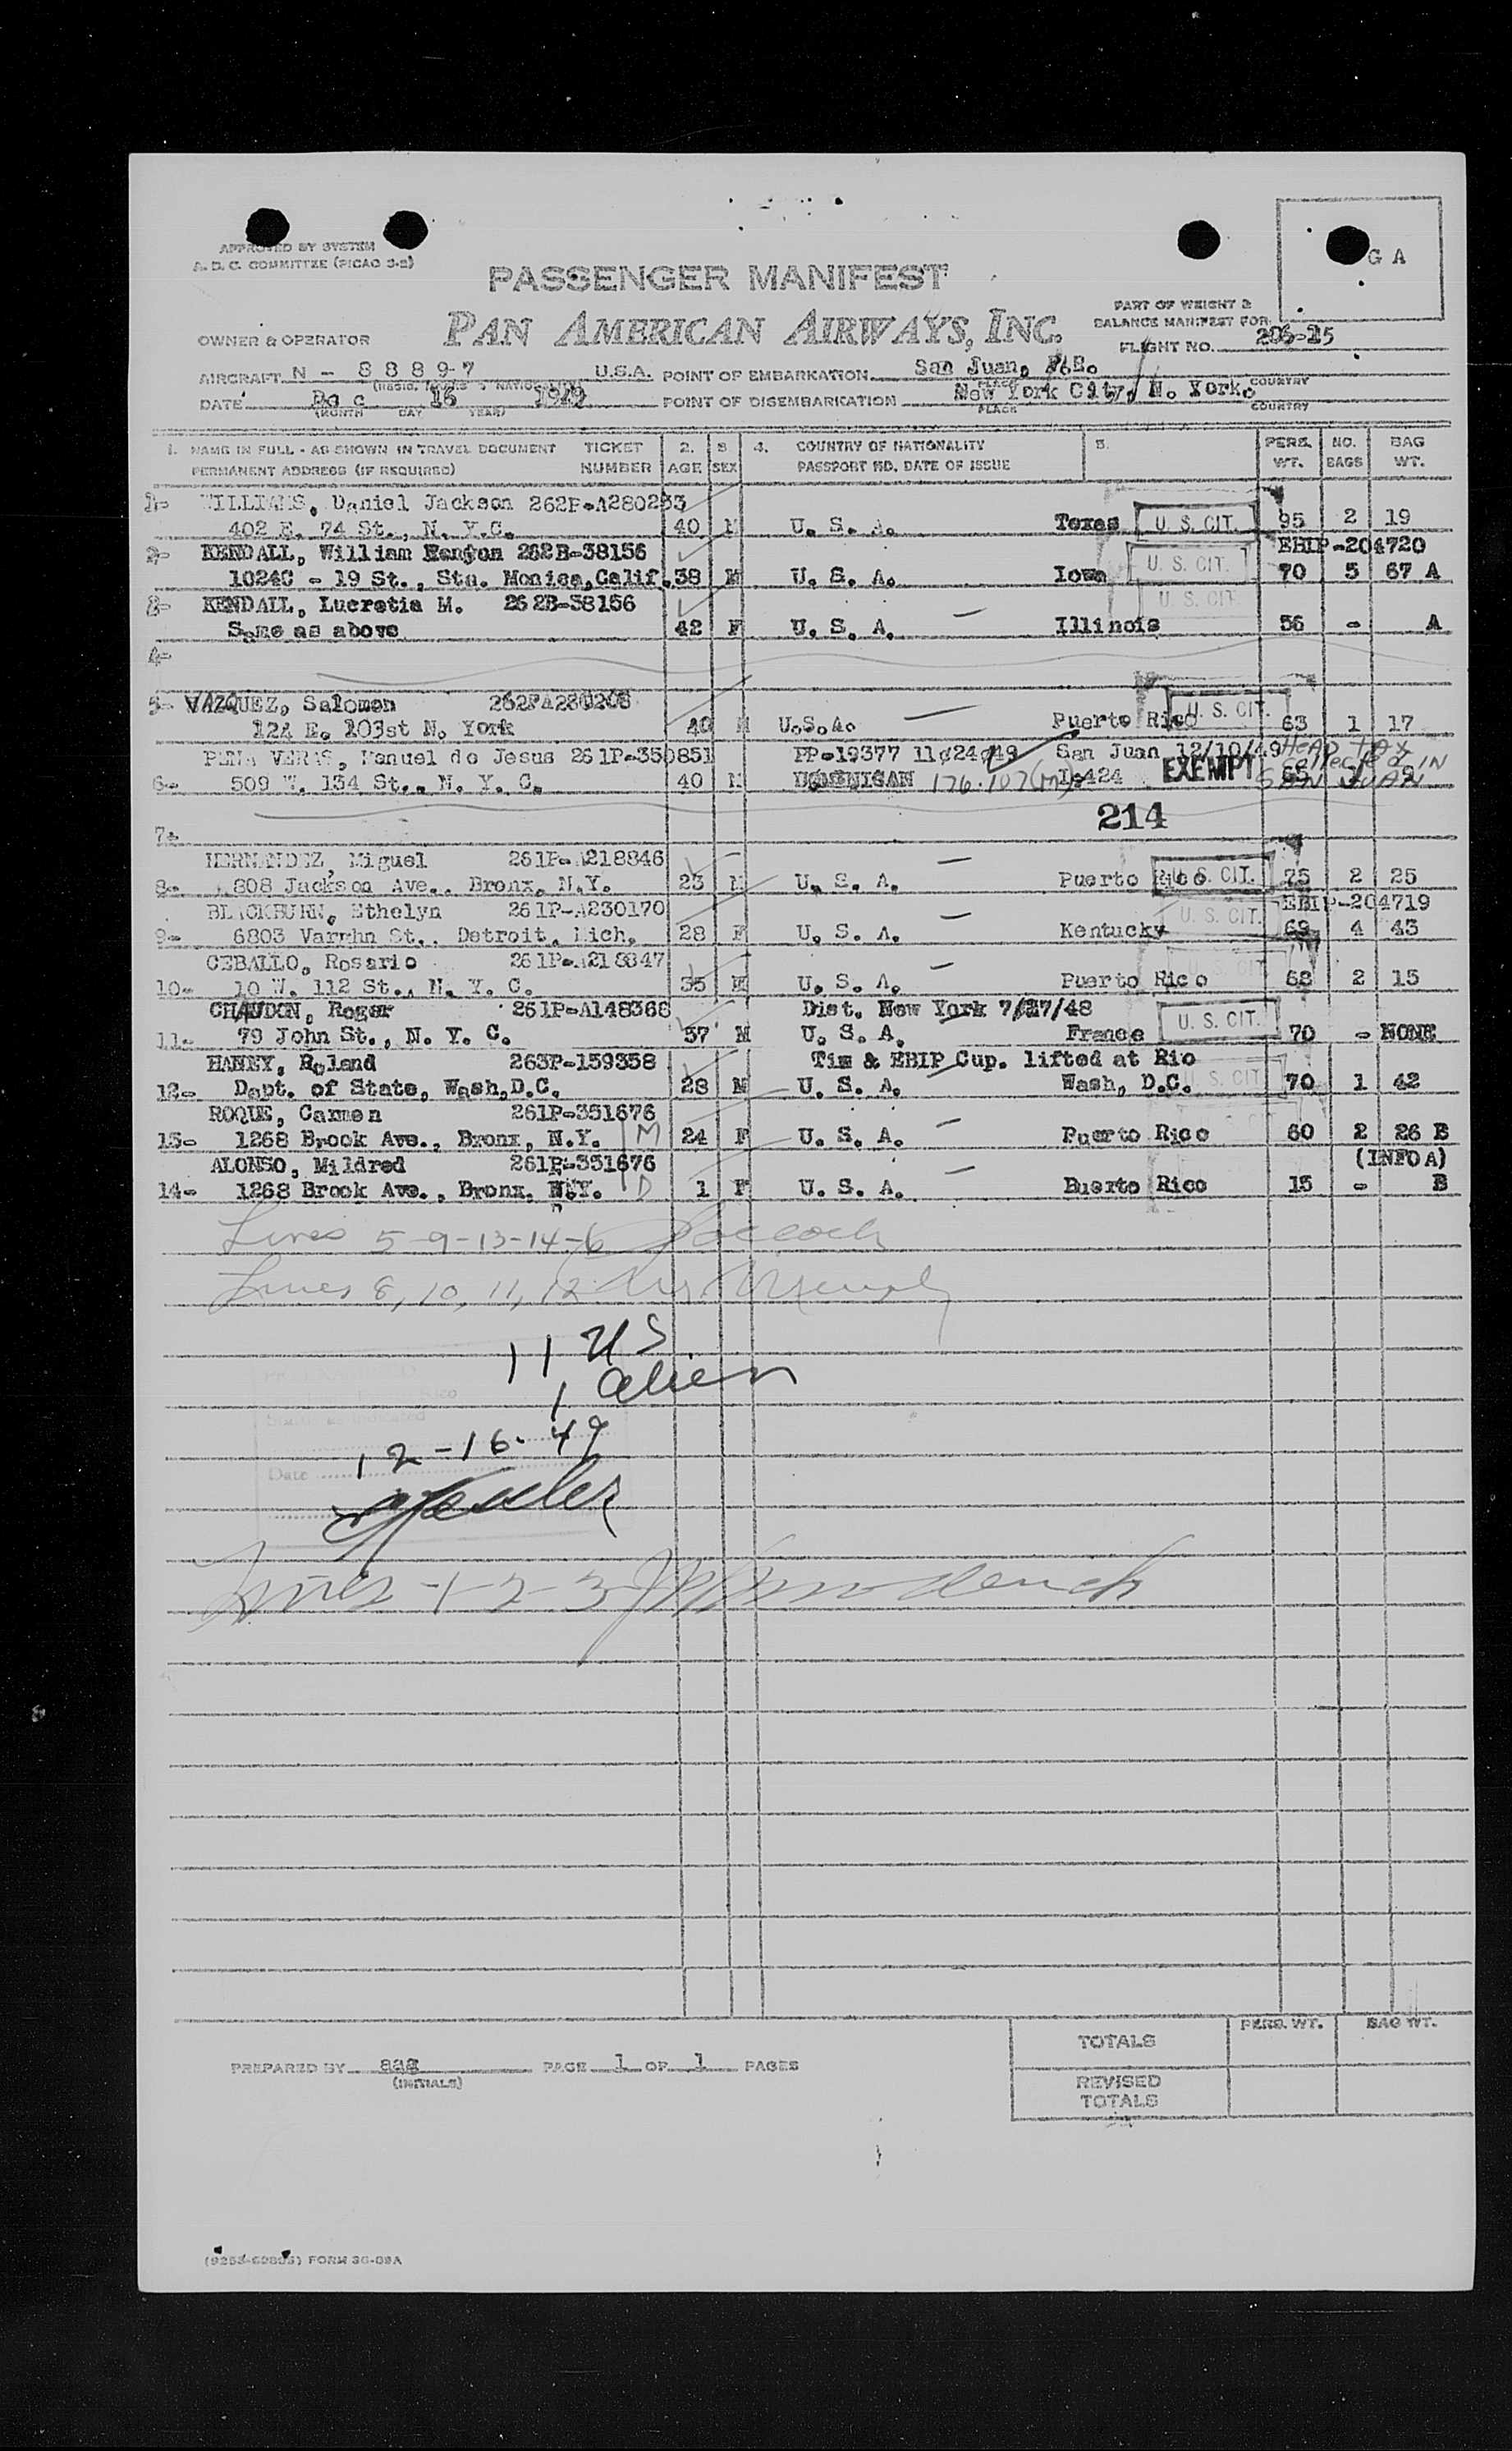 APPROVED BY SYSTEM
A. D. C. COMMITTEE (PICAO 3-2)
G A
PASSENGER MANIFEST
PAN AMERICAN AIRWAYS, INC.
PART OF WEIGHT &
BALANCE MANIFEST FOR
OWNER & OPERATOR
FLIGHT NO. 206-15
AIRCRAFT N - 88897 U.S.A. POINT OF EMBARKATION San Juan, P.R.
PLACE COUNTRY
DATE Dec 16 1949 POINT OF DISEMBARKATION New York City, N. York.
(MONTH DAY YEAR) PLACE COUNTRY
1. NAME IN FULL - AS SHOWN IN TRAVEL DOCUMENT TICKET 2. 3 4. COUNTRY OF NATIONALITY 5. PERS. NO. BAG
PERMANENT ADDRESS (IF REQUIRED) NUMBER AGE SEX PASSPORT NO. DATE OF ISSUE WT. BAGS WT.
1- WILLIAMS, Daniel Jackson 262P-A280253
402 E. 74 St., N. Y.C. 40 M U. S. A. Texas U. S. CIT. 95 2 19
2- KENDALL, William Kenyon 262B-38156 EBIP-204720
1024C - 19 St., Sta. Monica, Calif. 38 M U. S. A. Iowa U. S. CIT. 70 5 67 A
3- KENDALL, Lucretia M. 262B-38156 U. S. CIT.
Same as above 42 F U. S. A. Illinois 56 - A
4-
5- VAZQUEZ, Salomon 262PA280208
124 E. 103st N. York 40 M U.S.A. Puerto Rico U. S. CIT. 63 1 17
PENA VERAS, Manuel de Jesus 261P-350851 PP-19377 11/24/49 San Juan 12/10/49 HEAD TAX
6- 509 W. 134 St., N. Y. C. 40 M DOMINICAN EXEMPT collected IN
SAN JUAN
214
7-
HERNANDEZ, Miguel 261P-A218846
8- 808 Jackson Ave., Bronx, N.Y. 23 M U. S. A. Puerto Rico U. S. CIT. 75 2 25
BLACKBURN, Ethelyn 261P-A230170 U. S. CIT. EBIP-204719
9- 6803 Varnhn St., Detroit, Mich. 28 F U. S. A. Kentucky 69 4 43
CEBALLO, Rosario 261P-A218847
10- 10 W. 112 St., N. Y. C. 35 M U. S. A. Puerto Rico 68 2 15
CHAUDON, Roger 261P-A148368 Dist. New York 7/27/48
11- 79 John St., N. Y. C. 57 M U. S. A. France U. S. CIT. 70 - NONE
HANEY, Roland 263P-159358 Tim & EBIP Cup. lifted at Rio
12- Dept. of State, Wash, D.C. 28 M U. S. A. Wash, D.C. U. S. CIT. 70 1 42
ROQUE, Carmen 261P-351676
13- 1268 Brook Ave., Bronx, N.Y. M 24 F U. S. A. Puerto Rico 60 2 26 B
ALONSO, Mildred 261P-351676 (INFO A)
14- 1268 Brook Ave., Bronx, N.Y. D 1 F U. S. A. Puerto Rico 15 - B
Lines 5-9-13-14-6
Lines 8, 10, 11, 12
11 US
1 alien
Date 12-16-49
Lines -1-2-3
TOTALS PERS. WT. BAG WT.
PREPARED BY aag PAGE 1 OF 1 PAGES
(INITIALS)
REVISED
TOTALS
FORM 36-09A